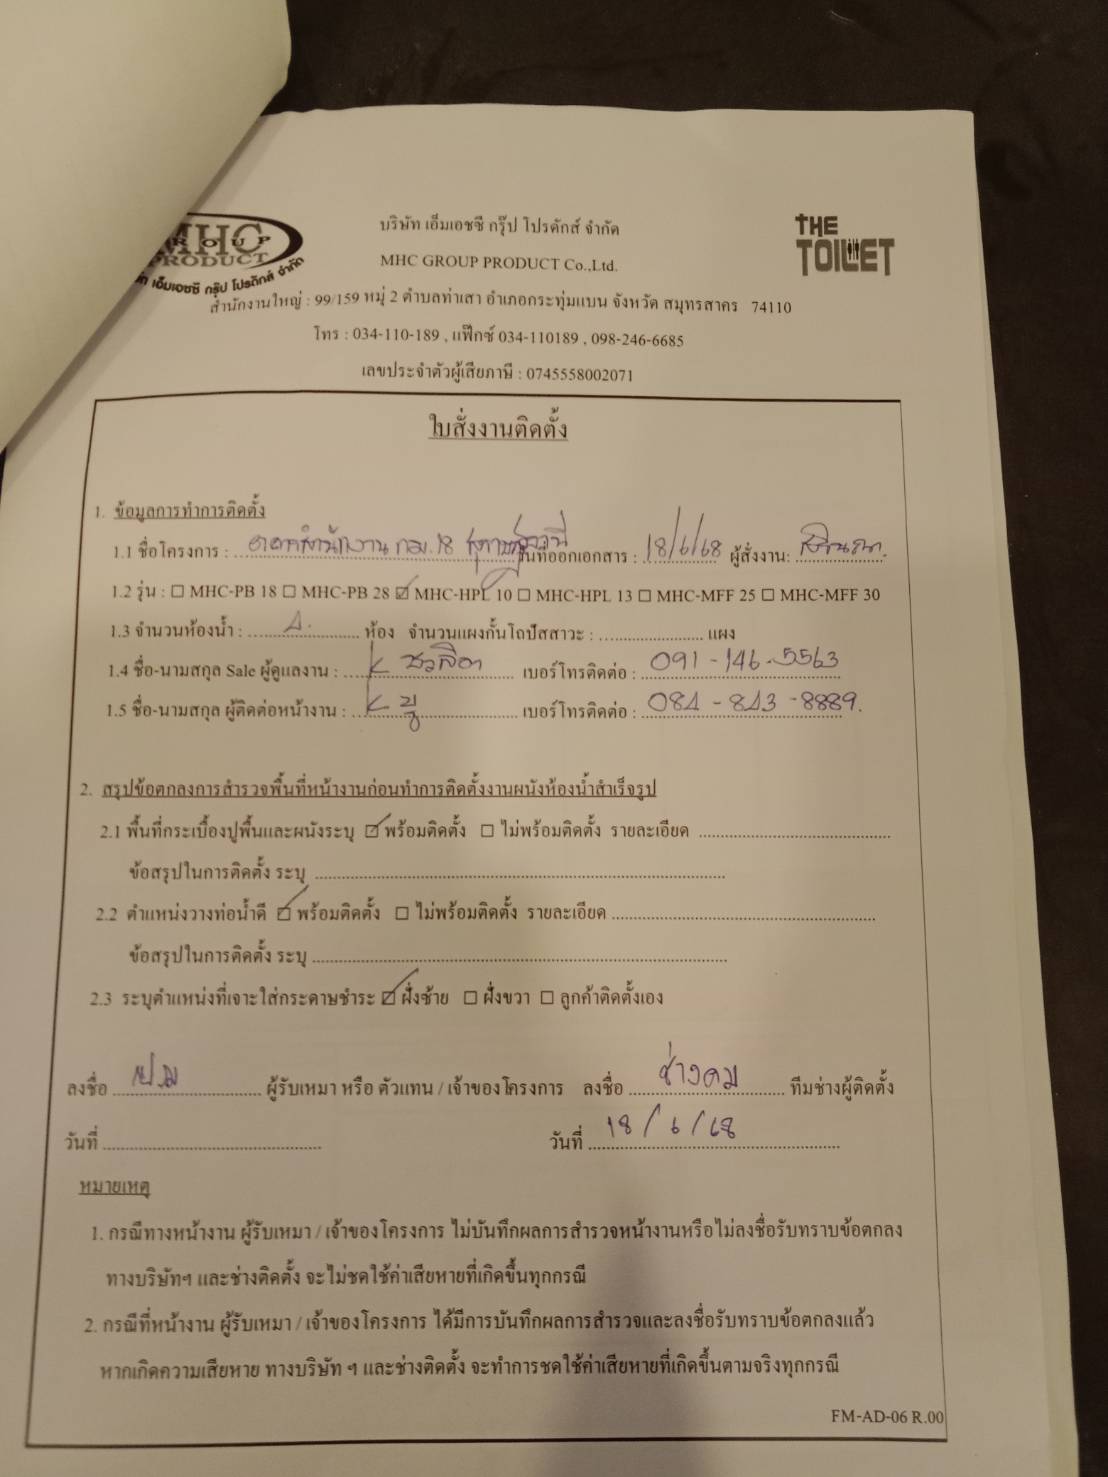 MHC
GROUP
PRODUCT
เอ็มเอชซี กรุ๊ป โปรดักส์ จำกัด
บริษัท เอ็มเอชซี กรุ๊ป โปรดักส์ จำกัด
MHC GROUP PRODUCT Co.,Ltd.
THE
TOILET
สำนักงานใหญ่ : 99/159 หมู่ 2 ตำบลท่าเสา อำเภอกระทุ่มแบน จังหวัด สมุทรสาคร 74110
โทร : 034-110-189 , แฟ็กซ์ 034-110189 , 098-246-6685
เลขประจำตัวผู้เสียภาษี : 0745558002071
ใบสั่งงานติดตั้ง
1. ข้อมูลการทำการติดตั้ง
1.1 ชื่อโครงการ : อาคารสำนักงาน กม.18 วันที่ออกเอกสาร : 18/6/68 ผู้สั่งงาน:
1.2 รุ่น : ☐ MHC-PB 18 ☐ MHC-PB 28 ☑ MHC-HPL 10 ☐ MHC-HPL 13 ☐ MHC-MFF 25 ☐ MHC-MFF 30
1.3 จำนวนห้องน้ำ : 4. ห้อง จำนวนแผงกั้นโถปัสสาวะ : แผง
1.4 ชื่อ-นามสกุล Sale ผู้ดูแลงาน : K ชวลิตา เบอร์โทรติดต่อ : 091-146-5563
1.5 ชื่อ-นามสกุล ผู้ติดต่อหน้างาน : K ปู เบอร์โทรติดต่อ : 084-843-8889.
2. สรุปข้อตกลงการสำรวจพื้นที่หน้างานก่อนทำการติดตั้งงานผนังห้องน้ำสำเร็จรูป
2.1 พื้นที่กระเบื้องปูพื้นและผนังระบุ ☑ พร้อมติดตั้ง ☐ ไม่พร้อมติดตั้ง รายละเอียด
ข้อสรุปในการติดตั้ง ระบุ
2.2 ตำแหน่งวางท่อน้ำดี ☑ พร้อมติดตั้ง ☐ ไม่พร้อมติดตั้ง รายละเอียด
ข้อสรุปในการติดตั้ง ระบุ
2.3 ระบุตำแหน่งที่เจาะใส่กระดาษชำระ ☑ ฝั่งซ้าย ☐ ฝั่งขวา ☐ ลูกค้าติดตั้งเอง
ลงชื่อ ผู้รับเหมา หรือ ตัวแทน / เจ้าของโครงการ ลงชื่อ ช่างคม ทีมช่างผู้ติดตั้ง
วันที่ วันที่ 18/6/68
หมายเหตุ
1. กรณีทางหน้างาน ผู้รับเหมา / เจ้าของโครงการ ไม่บันทึกผลการสำรวจหน้างานหรือไม่ลงชื่อรับทราบข้อตกลง
ทางบริษัทฯ และช่างติดตั้ง จะไม่ชดใช้ค่าเสียหายที่เกิดขึ้นทุกกรณี
2. กรณีที่หน้างาน ผู้รับเหมา / เจ้าของโครงการ ได้มีการบันทึกผลการสำรวจและลงชื่อรับทราบข้อตกลงแล้ว
หากเกิดความเสียหาย ทางบริษัท ฯ และช่างติดตั้ง จะทำการชดใช้ค่าเสียหายที่เกิดขึ้นตามจริงทุกกรณี
FM-AD-06 R.00